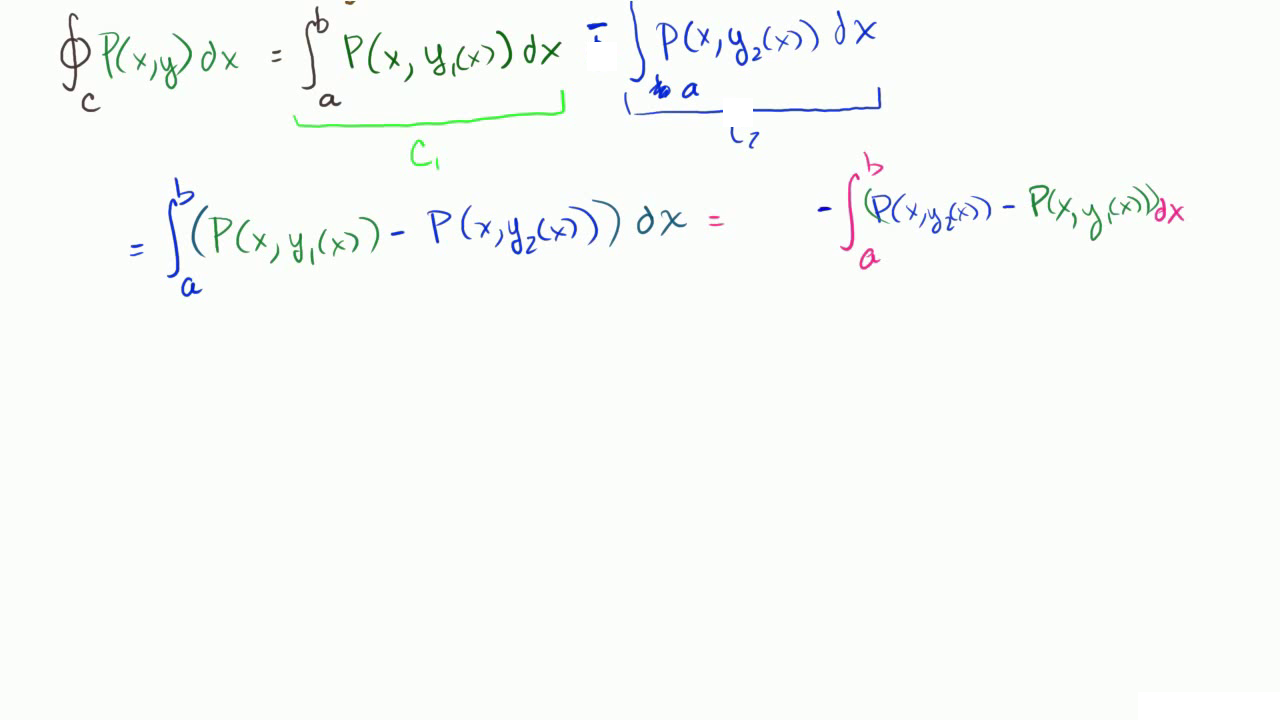 ∮_C P(x,y)dx = ∫_a^b P(x, y₁(x)) dx − ∫_a P(x, y₂(x)) dx
C₁ C₂
= ∫_a^b (P(x, y₁(x)) − P(x, y₂(x))) dx = − ∫_a^b (P(x, y₂(x)) − P(x, y₁(x))) dx